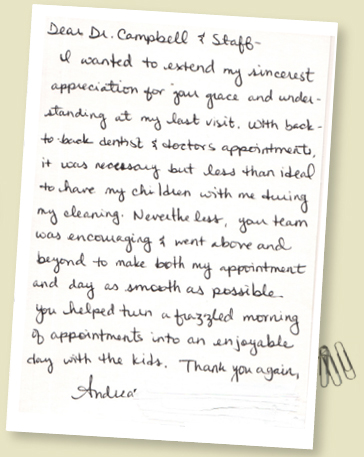 Dear Dr. Campbell & Staff-
I wanted to extend my sincerest
appreciation for your grace and under-
standing at my last visit. With back-
to-back dentist & doctors appointments,
it was necessary but less than ideal
to have my children with me during
my cleaning. Nevertheless, your team
was encouraging & went above and
beyond to make both my appointment
and day as smooth as possible.
You helped turn a frazzled morning
of appointments into an enjoyable
day with the kids. Thank you again,
Andrea